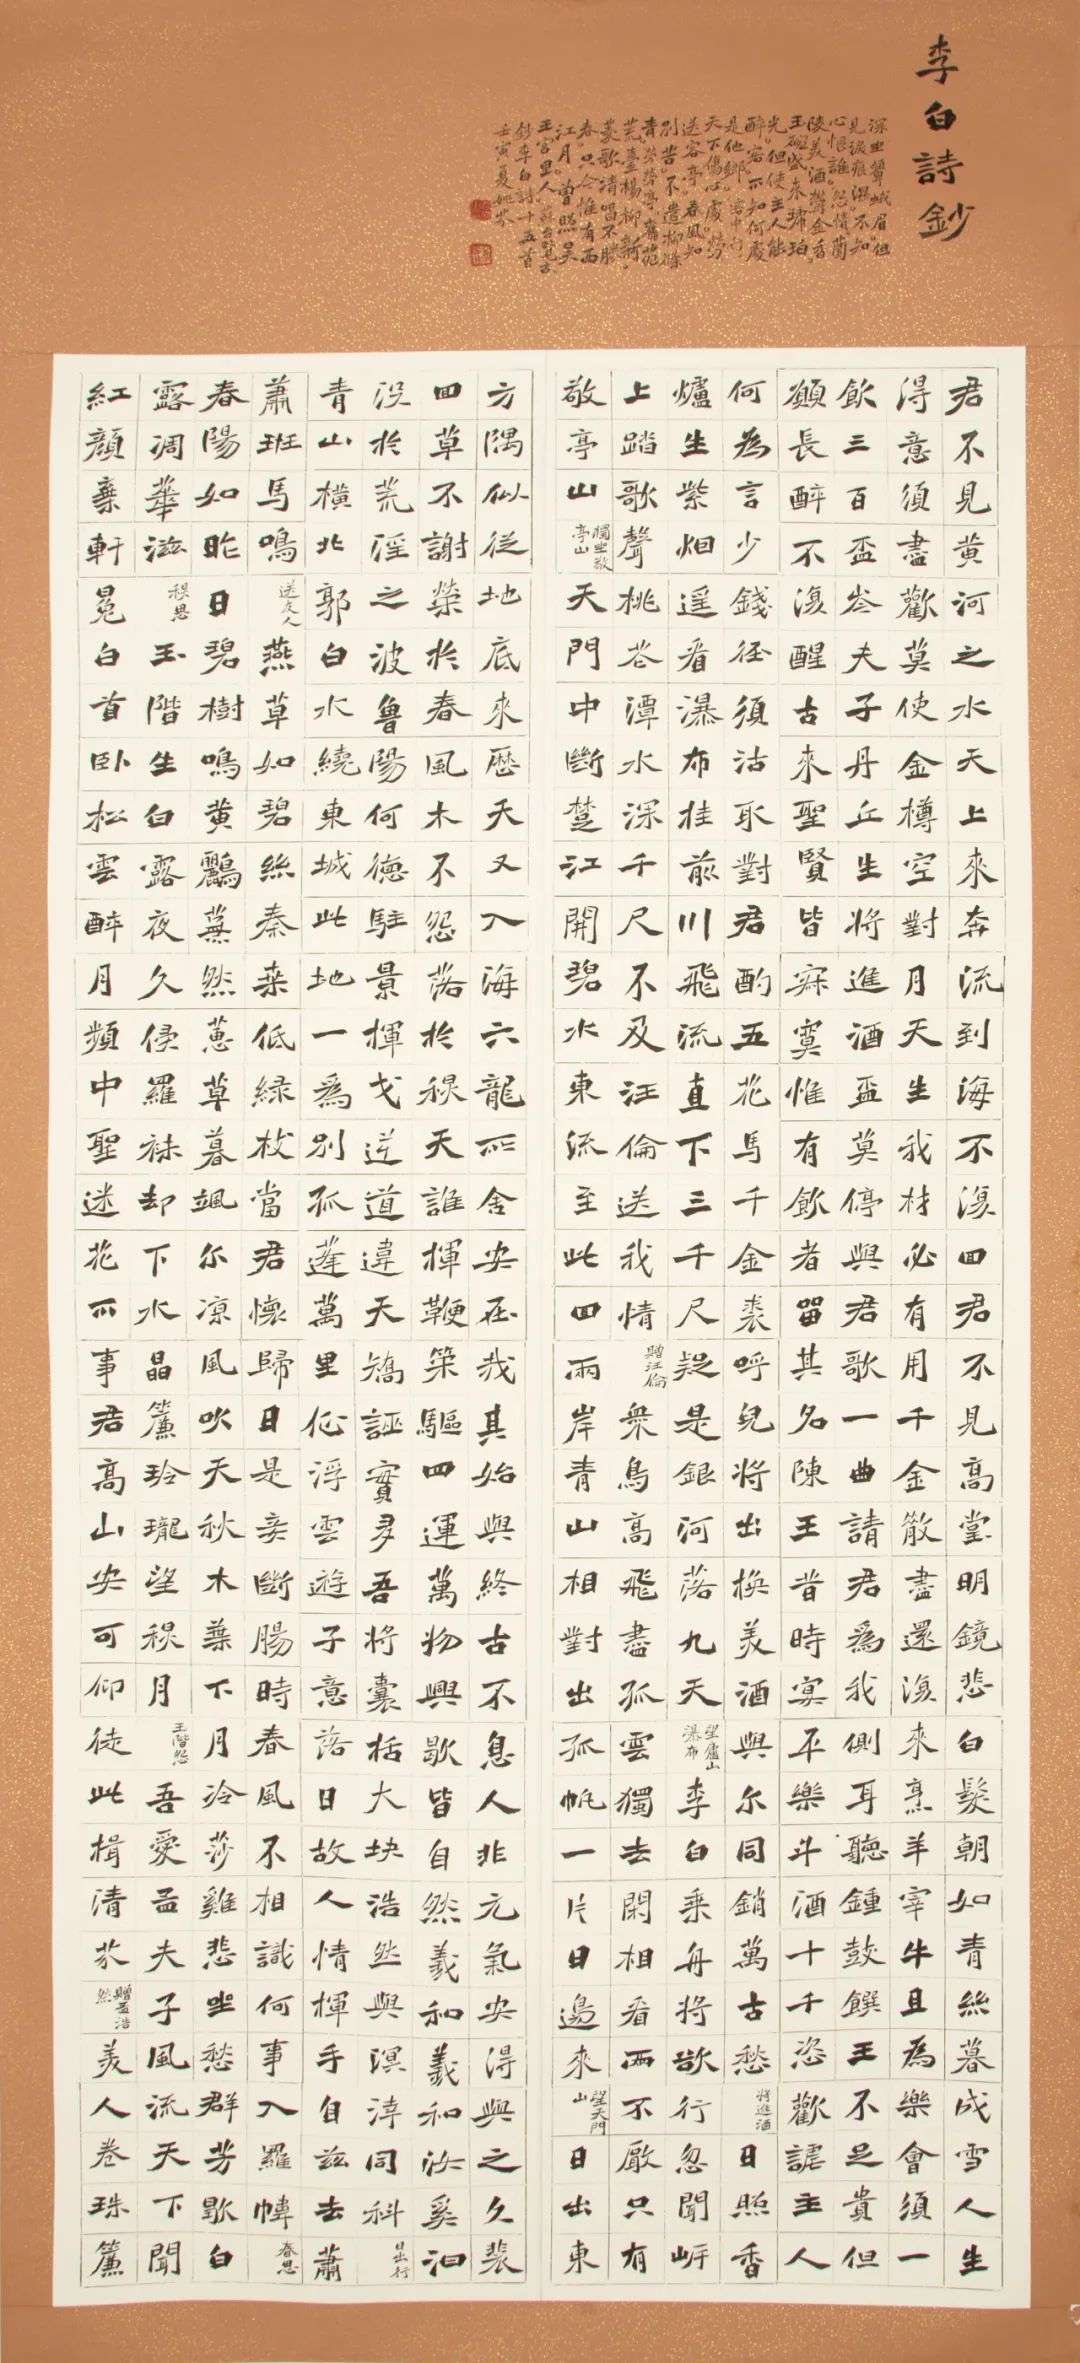 李白詩鈔
深坐顰蛾眉但
見淚痕濕不知
心恨誰怨情蘭
陵美酒鬱金香
玉碗盛來琥珀
光但使主人能
醉客不知何處
是他鄉客中行
天下傷心處勞
送客亭春風知
別苦不遣柳條
青勞勞亭舊苑
荒臺楊柳新
菱歌清唱不勝
春只今惟有西
江月曾照吳
王宮里人蘇臺覽古
鈔李白詩十五首
壬寅夏姚
君不見黃河之水天上來奔流到海不復回君不見高堂明鏡悲白髮朝如青絲暮成雪人生
得意須盡歡莫使金樽空對月天生我材必有用千金散盡還復來烹羊宰牛且為樂會須一
飲三百盃岑夫子丹丘生將進酒盃莫停與君歌一曲請君為我側耳聽鍾鼓饌玉不足貴但
願長醉不復醒古來聖賢皆寂寞惟有飲者留其名陳王昔時宴平樂斗酒十千恣歡謔主人
何為言少錢徑須沽取對君酌五花馬千金裘呼兒將出換美酒與尔同銷萬古愁將進酒日照香
爐生紫烟遥看瀑布挂前川飛流直下三千尺疑是銀河落九天望廬山瀑布李白乘舟將欲行忽聞岸
上踏歌聲桃花潭水深千尺不及汪倫送我情贈汪倫衆鳥高飛盡孤雲獨去閑相看兩不厭只有
敬亭山獨坐敬亭山天門中斷楚江開碧水東流至此回兩岸青山相對出孤帆一片日邊來望天門山日出東
方隅似從地底來歷天又入海六龍所舍安在哉其始與終古不息人非元氣安得與之久裴
回草不謝榮於春風木不怨落於秋天誰揮鞭策驅四運萬物興歇皆自然羲和羲和汝奚汩
沒於荒淫之波魯陽何德駐景揮戈逆道違天矯誣實多吾將囊括大塊浩然與溟涬同科日出行
青山橫北郭白水繞東城此地一為別孤蓬萬里征浮雲遊子意落日故人情揮手自茲去蕭
蕭班馬鳴送友人燕草如碧絲秦桑低綠枝當君懷歸日是妾斷腸時春風不相識何事入羅幃春思
春陽如昨日碧樹鳴黃鸝蕪然蕙草暮颯尔凉風吹天秋木葉下月冷莎雞悲坐愁群芳歇白
露凋華滋秋思玉階生白露夜久侵羅襪却下水晶簾玲瓏望秋月玉階怨吾愛孟夫子風流天下聞
紅顏棄軒冕白首臥松雲醉月頻中聖迷花不事君高山安可仰徒此揖清芬贈孟浩然美人卷珠簾